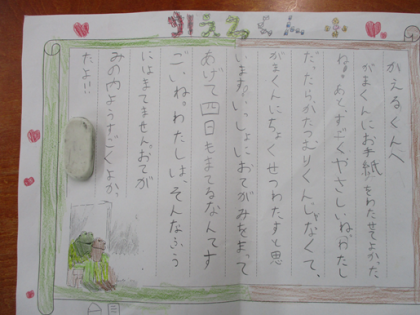 かえるくんへ
かえるくんへ
がまくんにお手紙をわたせてよかった
ね。あと、すごくやさしいね。わたし
だったらかたつむりくんじゃなくて、
がまくんにちょくせつわたすと思
います。いっしょにおてがみをまって
あげて四日もまてるなんてす
ごいね。わたしは、そんなふう
にはまてません。おてが
みの内ようすごくよか
たよ!!